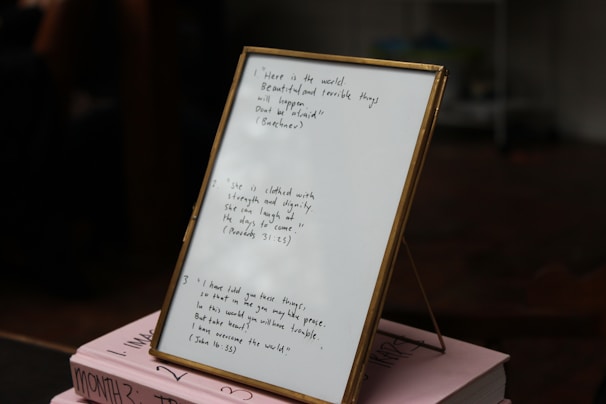 1. "Here is the world.
Beautiful and terrible things
will happen
Dont be afraid"
(Buechner)
2. "She is clothed with
strength and dignity.
She can laugh at
the days to come."
(Proverbs 31:25)
3 "I have told you these things,
so that in me you may have peace.
In this world you will have trouble.
But take heart!
I have overcome the world."
(John 16:33)
1.
2
3
MONTH 3: